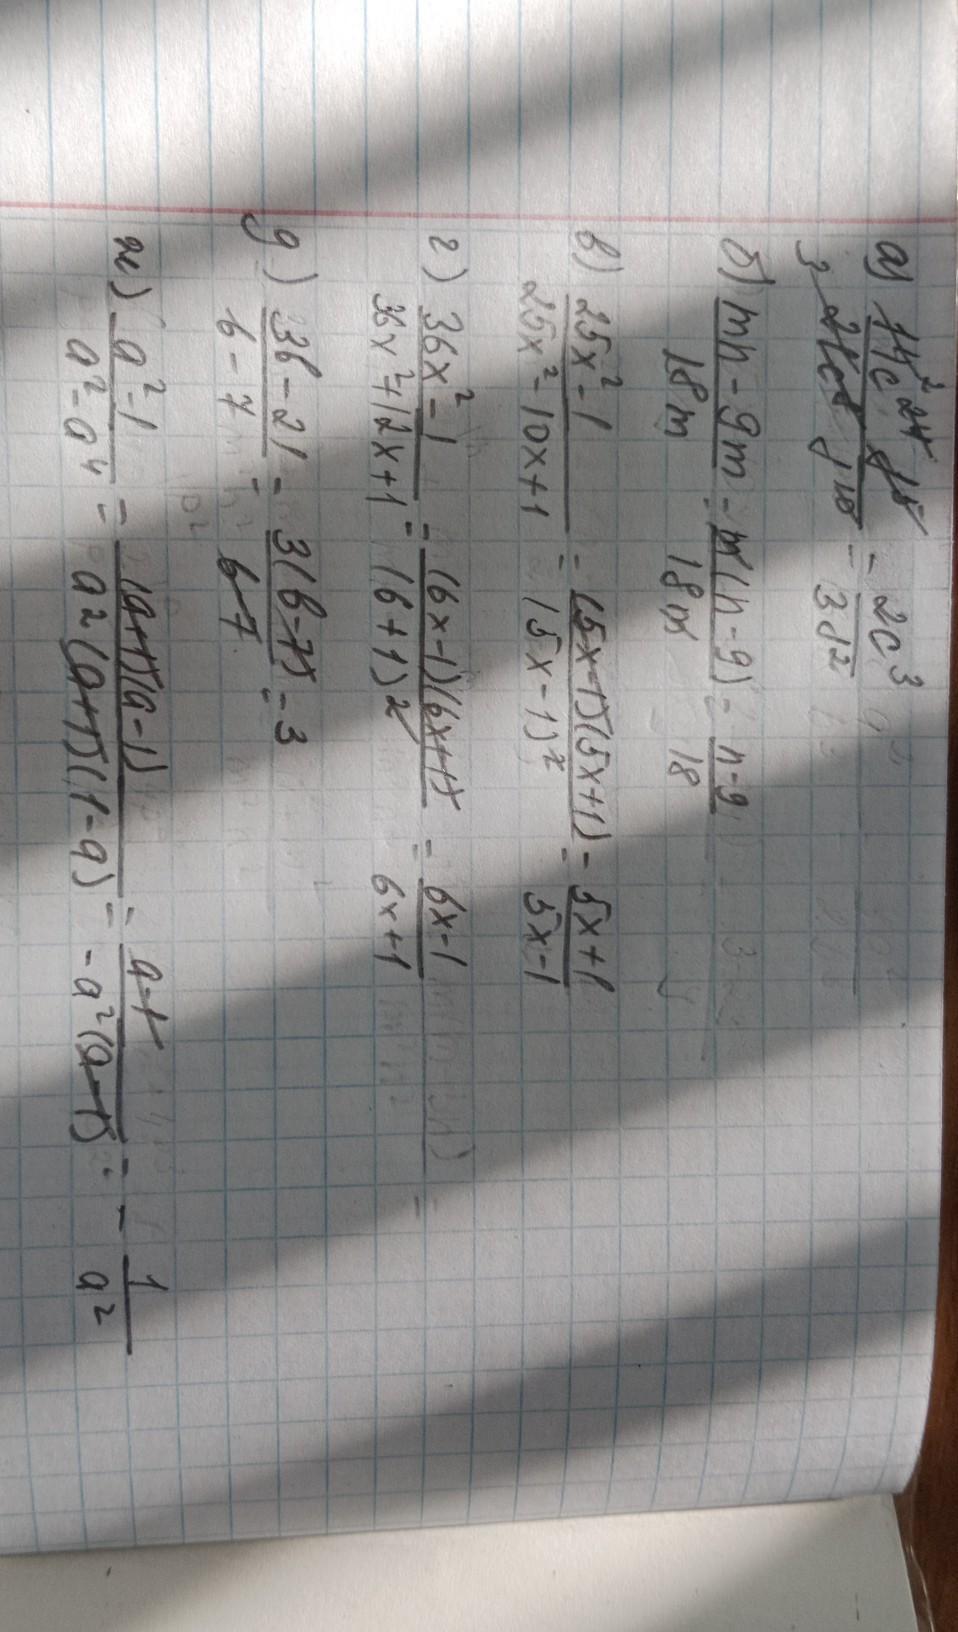 а)
= 2c³ / 3d²
б) mn - 9m / 18m = m(n-9) / 18m = n-9 / 18
в) 25x² - 1 / 25x² - 10x + 1 = (5x-1)(5x+1) / (5x-1)² = 5x+1 / 5x-1
г) 36x² - 1 / 36x² + 12x + 1 = (6x-1)(6x+1) / (6+1)² = 6x-1 / 6x+1
д) 3b - 21 / b - 7 = 3(b-7) / b-7 = 3
ж) a² - 1 / a² - a⁴ = (a+1)(a-1) / a²(a+1)(1-a) = a-1 / -a²(a-1) = - 1 / a²